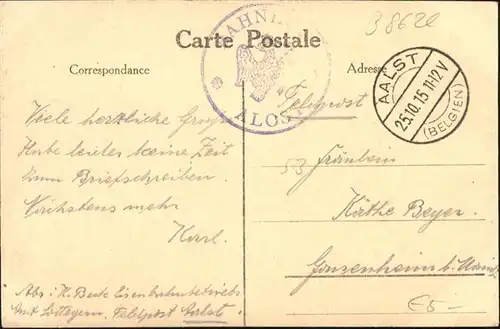 3862e
Carte Postale
BAHNH
ALOST
Correspondance
Adresse
AALST
25.10.15 11-12 V
(BELGIEN)
Feldpost
Viele herzliche Grüße
Habe leider keine Zeit
zum Briefschreiben.
Nächstens mehr
Karl.
53
Fräulein
Käthe Beyer.
Gonzenheim b.
Abs: K. Eisenbahnbetriebs
Amt Sottegem, Feldpost Aalst
€5-